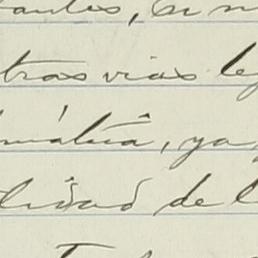 antes, si n
tras vias le
mática, ya
lidad de l